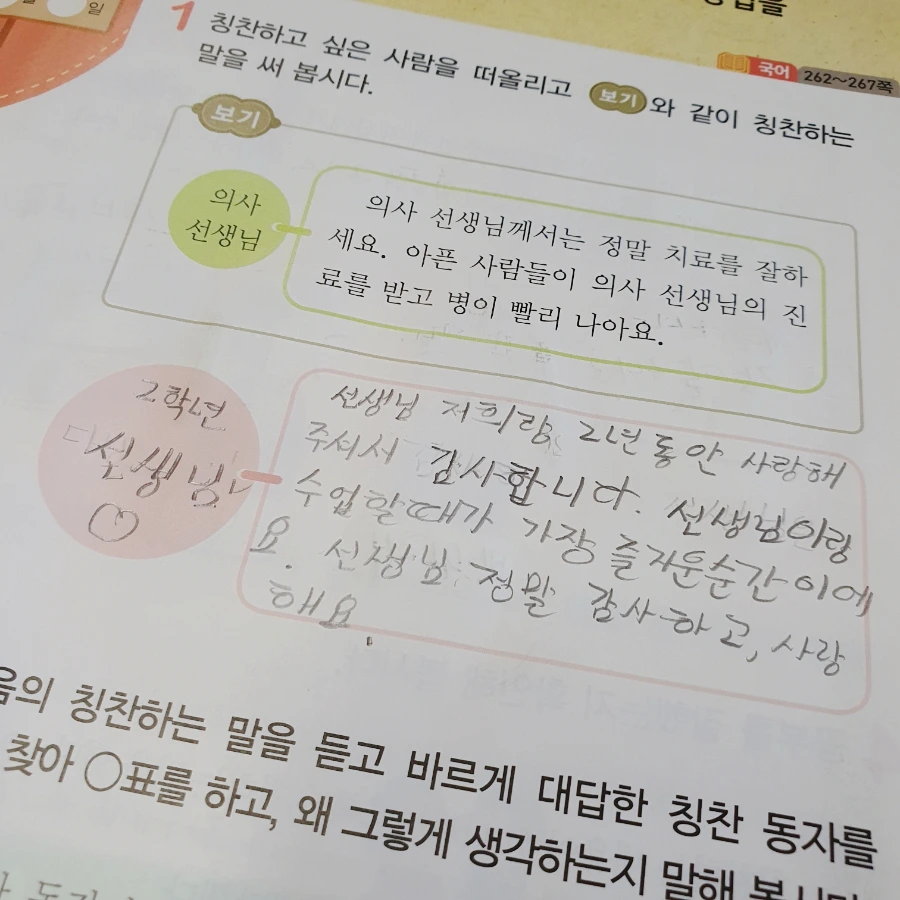 일
방법을
국어 262~267쪽
1 칭찬하고 싶은 사람을 떠올리고 보기 와 같이 칭찬하는
말을 써 봅시다.
보기
의사
선생님
의사 선생님께서는 정말 치료를 잘하
세요. 아픈 사람들이 의사 선생님의 진
료를 받고 병이 빨리 나아요.
2학년
선생님
♡
선생님 저희랑 2년동안 사랑해
주셔서 감사합니다. 선생님이랑
수업할때가 가장 즐거운순간이에
요. 선생님 정말 감사하고, 사랑
해요.
음의 칭찬하는 말을 듣고 바르게 대답한 칭찬 동자를
찾아 ○표를 하고, 왜 그렇게 생각하는지 말해 봅시다